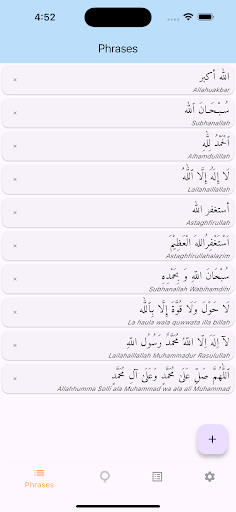 4:52
Phrases
الله أكبر
Allahuakbar
سُبْحَانَ ٱللَّٰه
Subhanallah
ٱلْحَمْدُ لِلَّٰهِ
Alhamdulillah
لَا إِلَهَ إِلَّا ٱللَّٰهُ
Lailahaillallah
أستغفر الله
Astaghfirullah
اَسْتَغْفِرُاللهَ الْعَظِيْمَ
Astaghfirullahalazim
سُبْحَانَ اللَّهِ وَ بِحَمْدِهِ
Subhanallah Wabihamdihi
لَا حَوْلَ وَلَا قُوَّةَ إِلَّا بِٱللَّٰه
La haula wala quwwata illa billah
لَآ إِلَهَ إِلَّا اللّهُ مُحَمَّدٌ رَسُوُل اللّهِ
Lailahaillallah Muhammadur Rasulullah
ٱللَّٰهُمَّ صَلِّ عَلَىٰ مُحَمَّدٍ وَعَلَىٰ آلِ مُحَمَّدٍ
Allahhumma Solli ala Muhammad wa ala ali Muhammad
Phrases